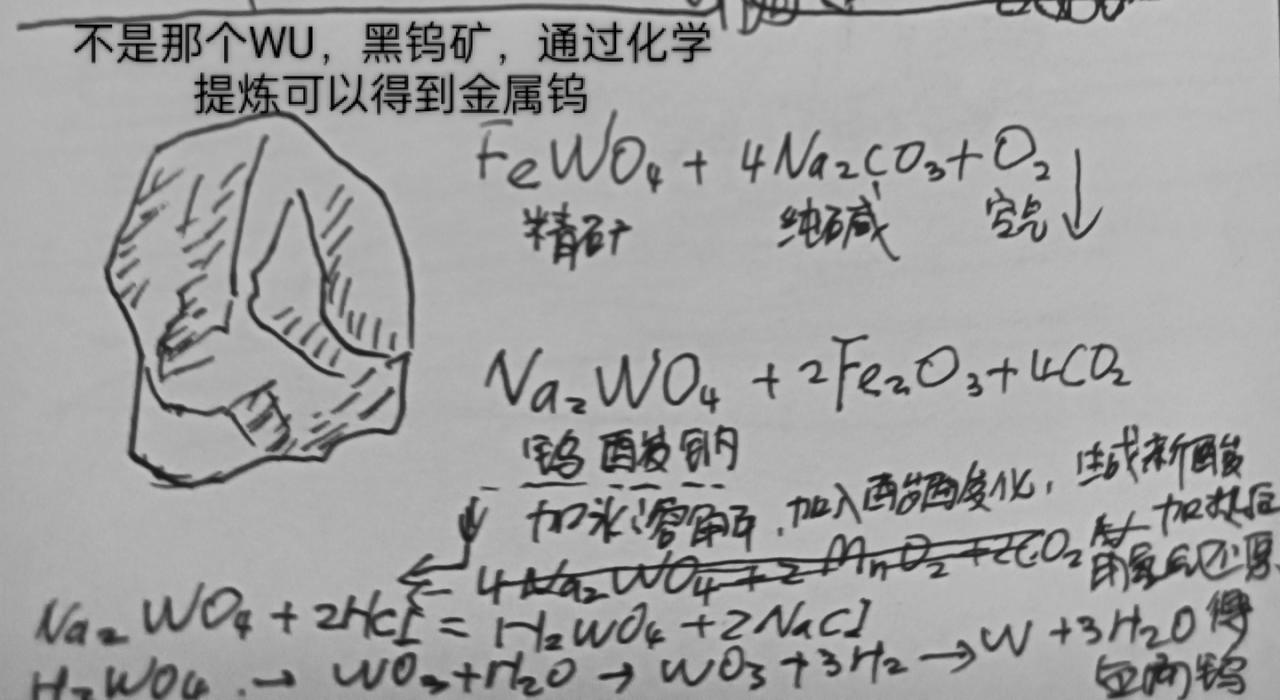 不是那个WU，黑钨矿，通过化学
提炼可以得到金属钨
FeWO₄ + 4Na₂CO₃ + O₂ ↓
精矿 纯碱 空气
Na₂WO₄ + 2Fe₂O₃ + 4CO₂
钨酸钠
加水溶解，加入酸酸化，生成新酸
加热后
用氢气还原
4Na₂WO₄ + 2MnO₂ + 2CO₂
Na₂WO₄ + 2HCl = H₂WO₄ + 2NaCl
H₂WO₄ → WO₃ + H₂O → WO₃ + 3H₂ → W + 3H₂O 得
金属钨